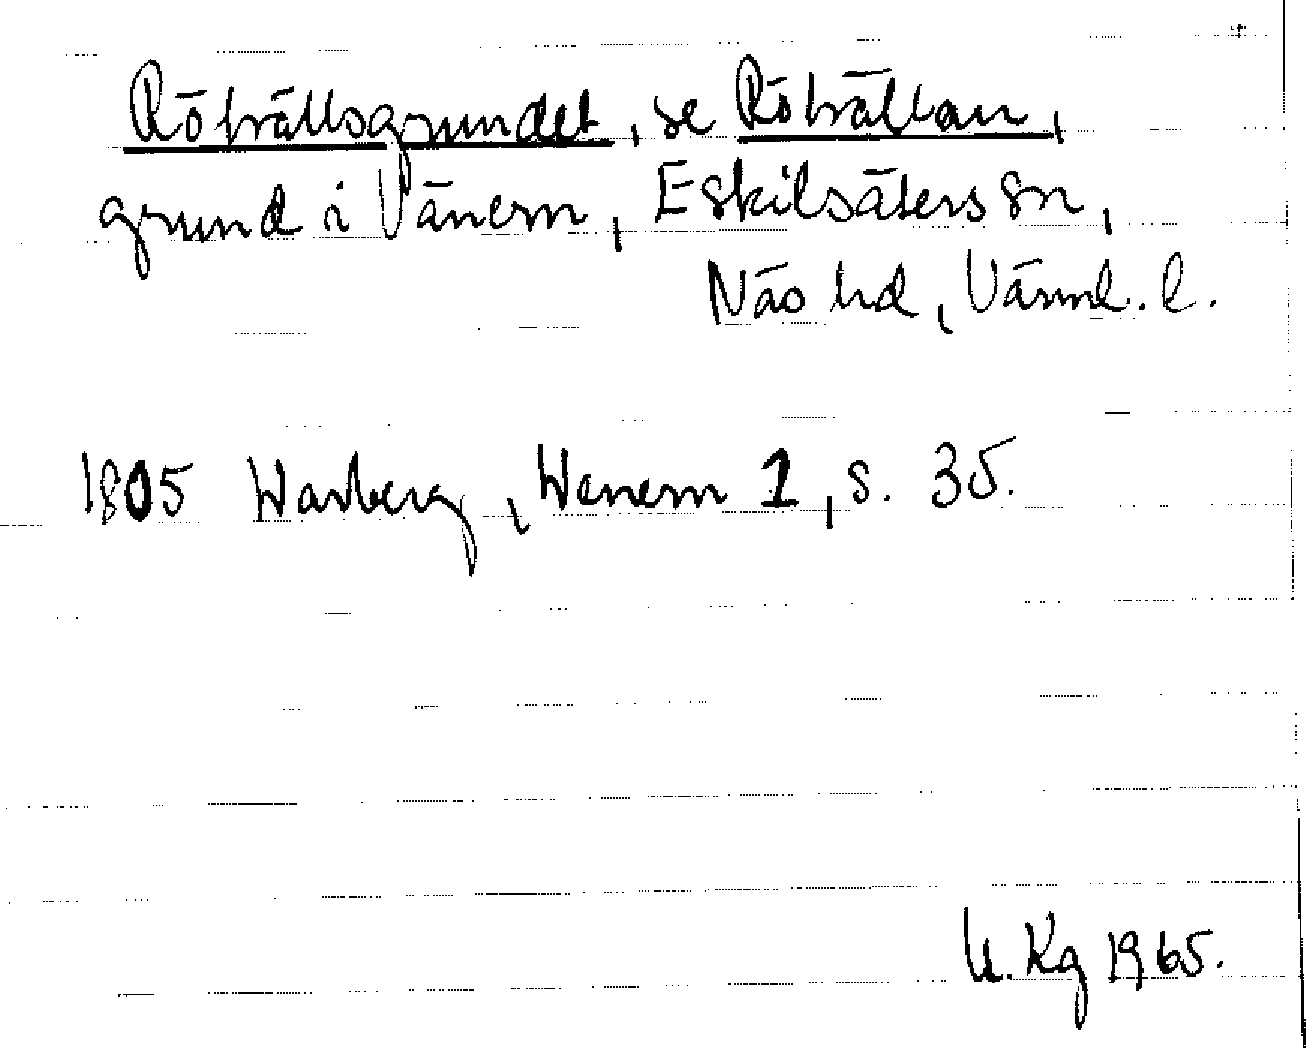 Röhällsgrundet, se Röhällan,
grund i Vänern, Eskilsäters sn,
Näs hd, Värml. l.
1805 Warberg, Wenern 1, s. 35.
U. Kg 1965.